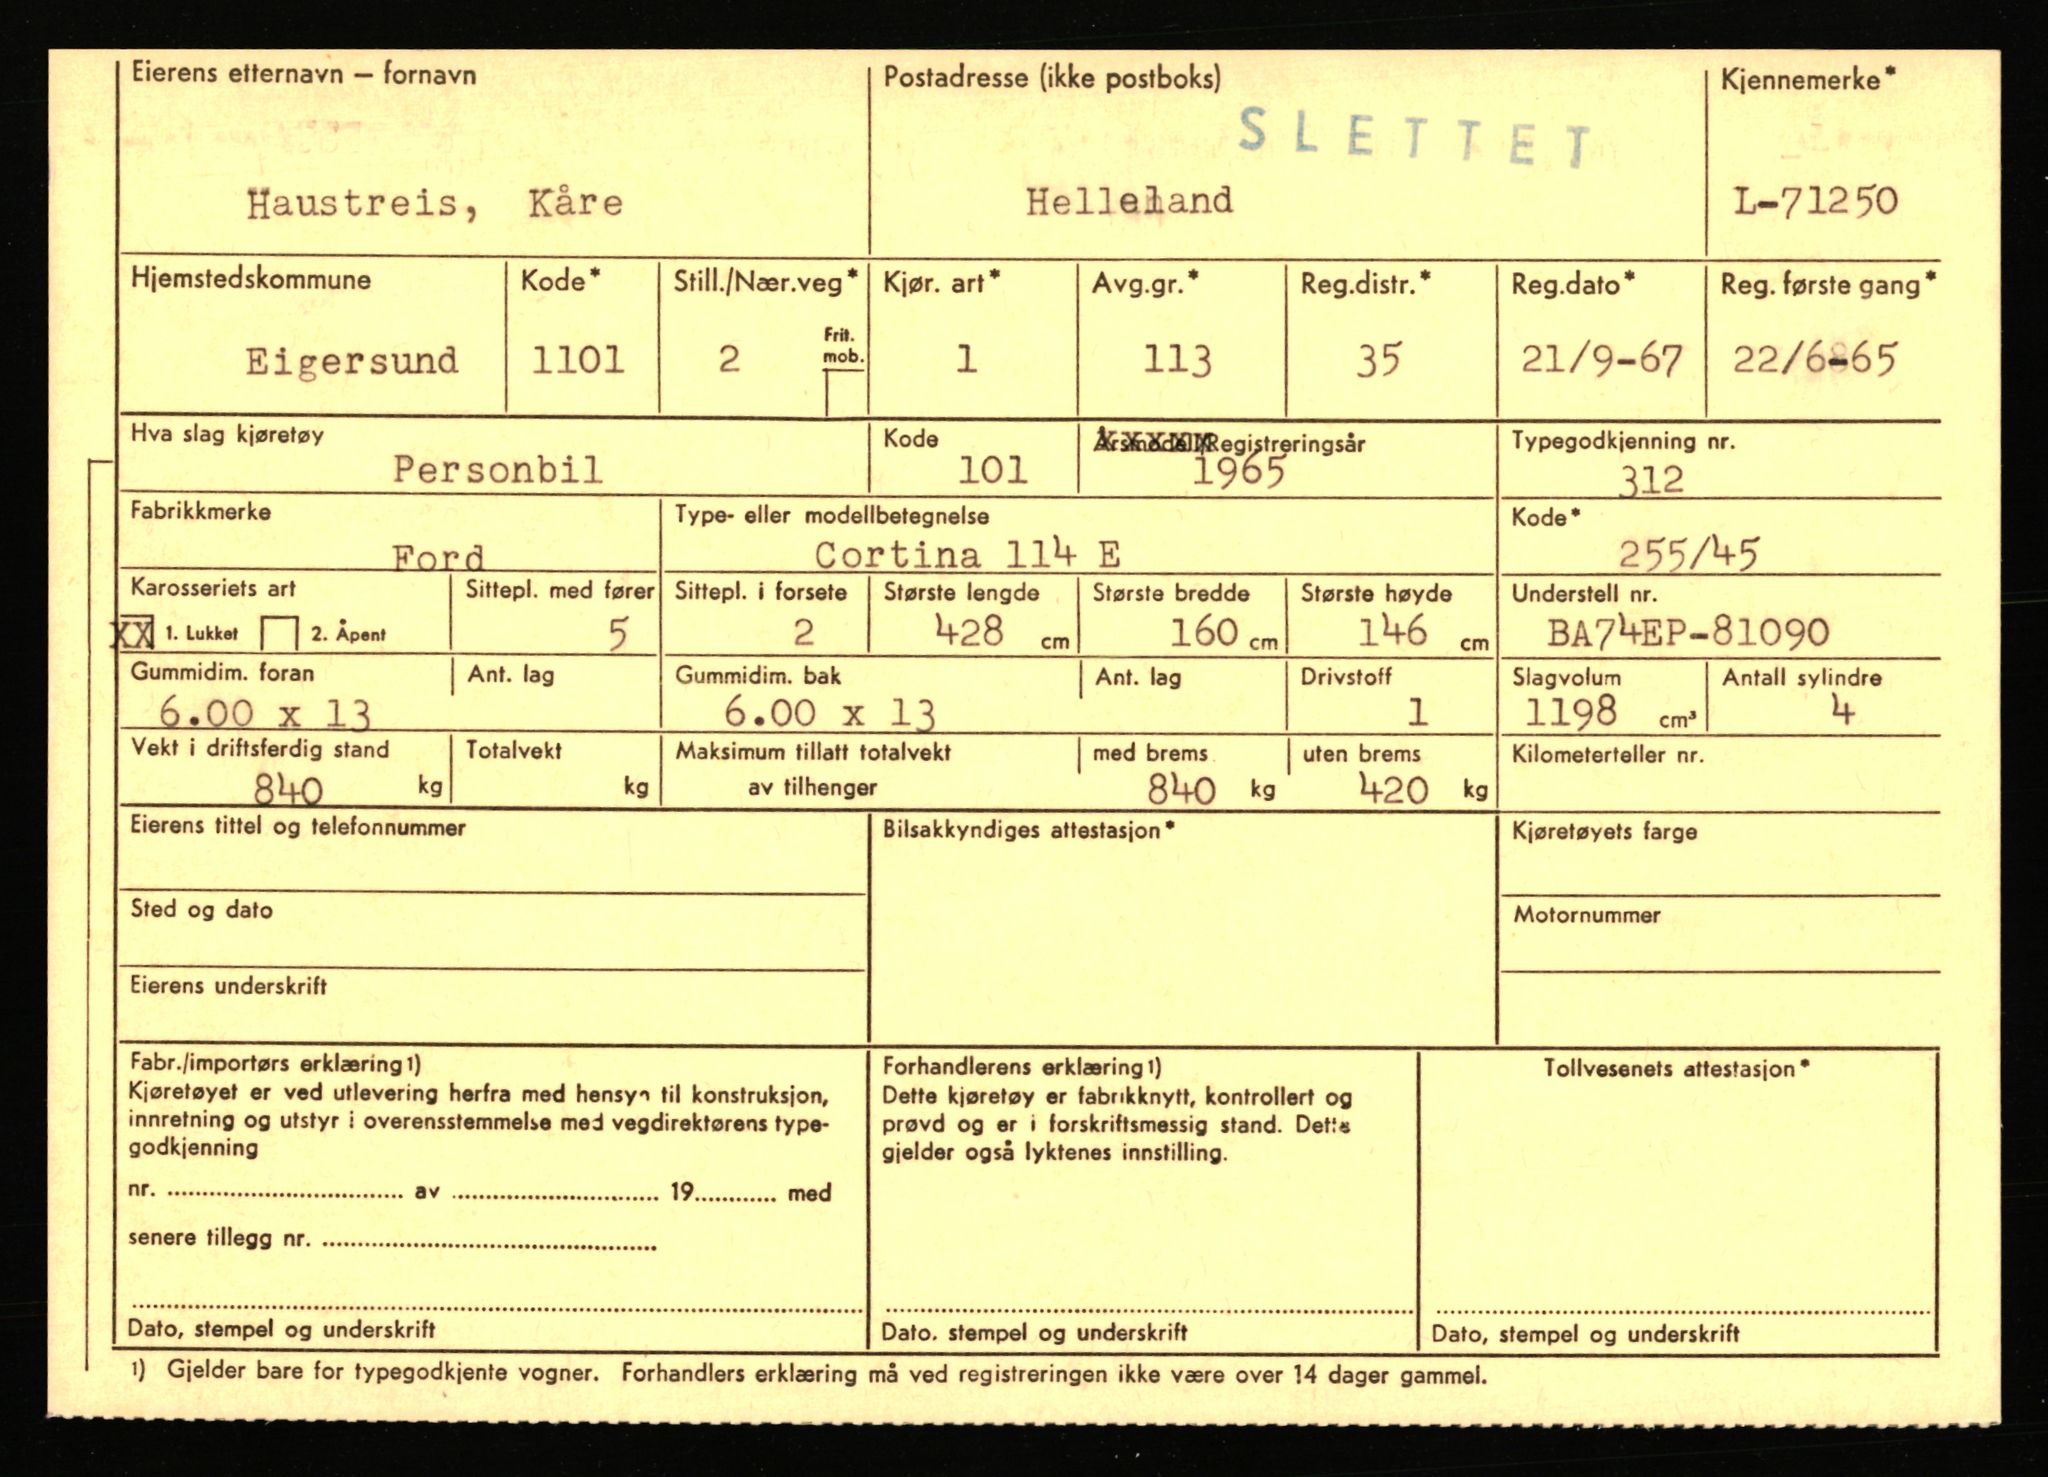 Eierens etternavn – fornavn Postadresse (ikke postboks) Kjennemerke*
SLETTET
Haustreis, Kåre Helleland L-71250
Hjemstedskommune Kode* Still./Nær.veg* Kjør. art* Avg.gr.* Reg.distr.* Reg.dato* Reg. første gang*
Frit. mob.
Eigersund 1101 2 1 113 35 21/9-67 22/6-65
Hva slag kjøretøy Kode Årsmodell/Registreringsår Typegodkjenning nr.
Personbil 101 1965 312
Fabrikkmerke Type- eller modellbetegnelse Kode*
Ford Cortina 114 E 255/45
Karosseriets art Sittepl. med fører Sittepl. i forsete Største lengde Største bredde Største høyde Understell nr.
XX 1. Lukket 2. Åpent 5 2 428 cm 160 cm 146 cm BA74EP-81090
Gummidim. foran Ant. lag Gummidim. bak Ant. lag Drivstoff Slagvolum Antall sylindre
6.00 x 13 6.00 x 13 1 1198 cm³ 4
Vekt i driftsferdig stand Totalvekt Maksimum tillatt totalvekt med brems uten brems Kilometerteller nr.
840 kg kg av tilhenger 840 kg 420 kg
Eierens tittel og telefonnummer Bilsakkyndiges attestasjon* Kjøretøyets farge
Sted og dato Motornummer
Eierens underskrift
Fabr./importørs erklæring 1) Forhandlerens erklæring 1) Tollvesenets attestasjon*
Kjøretøyet er ved utlevering herfra med hensyn til konstruksjon, Dette kjøretøy er fabrikknytt, kontrollert og
innretning og utstyr i overensstemmelse med vegdirektørens type- prøvd og er i forskriftsmessig stand. Dette
godkjenning gjelder også lyktenes innstilling.
nr. .......... av .......... 19.......... med
senere tillegg nr. ..........
Dato, stempel og underskrift Dato. stempel og underskrift Dato, stempel og underskrift
1) Gjelder bare for typegodkjente vogner. Forhandlers erklæring må ved registreringen ikke være over 14 dager gammel.